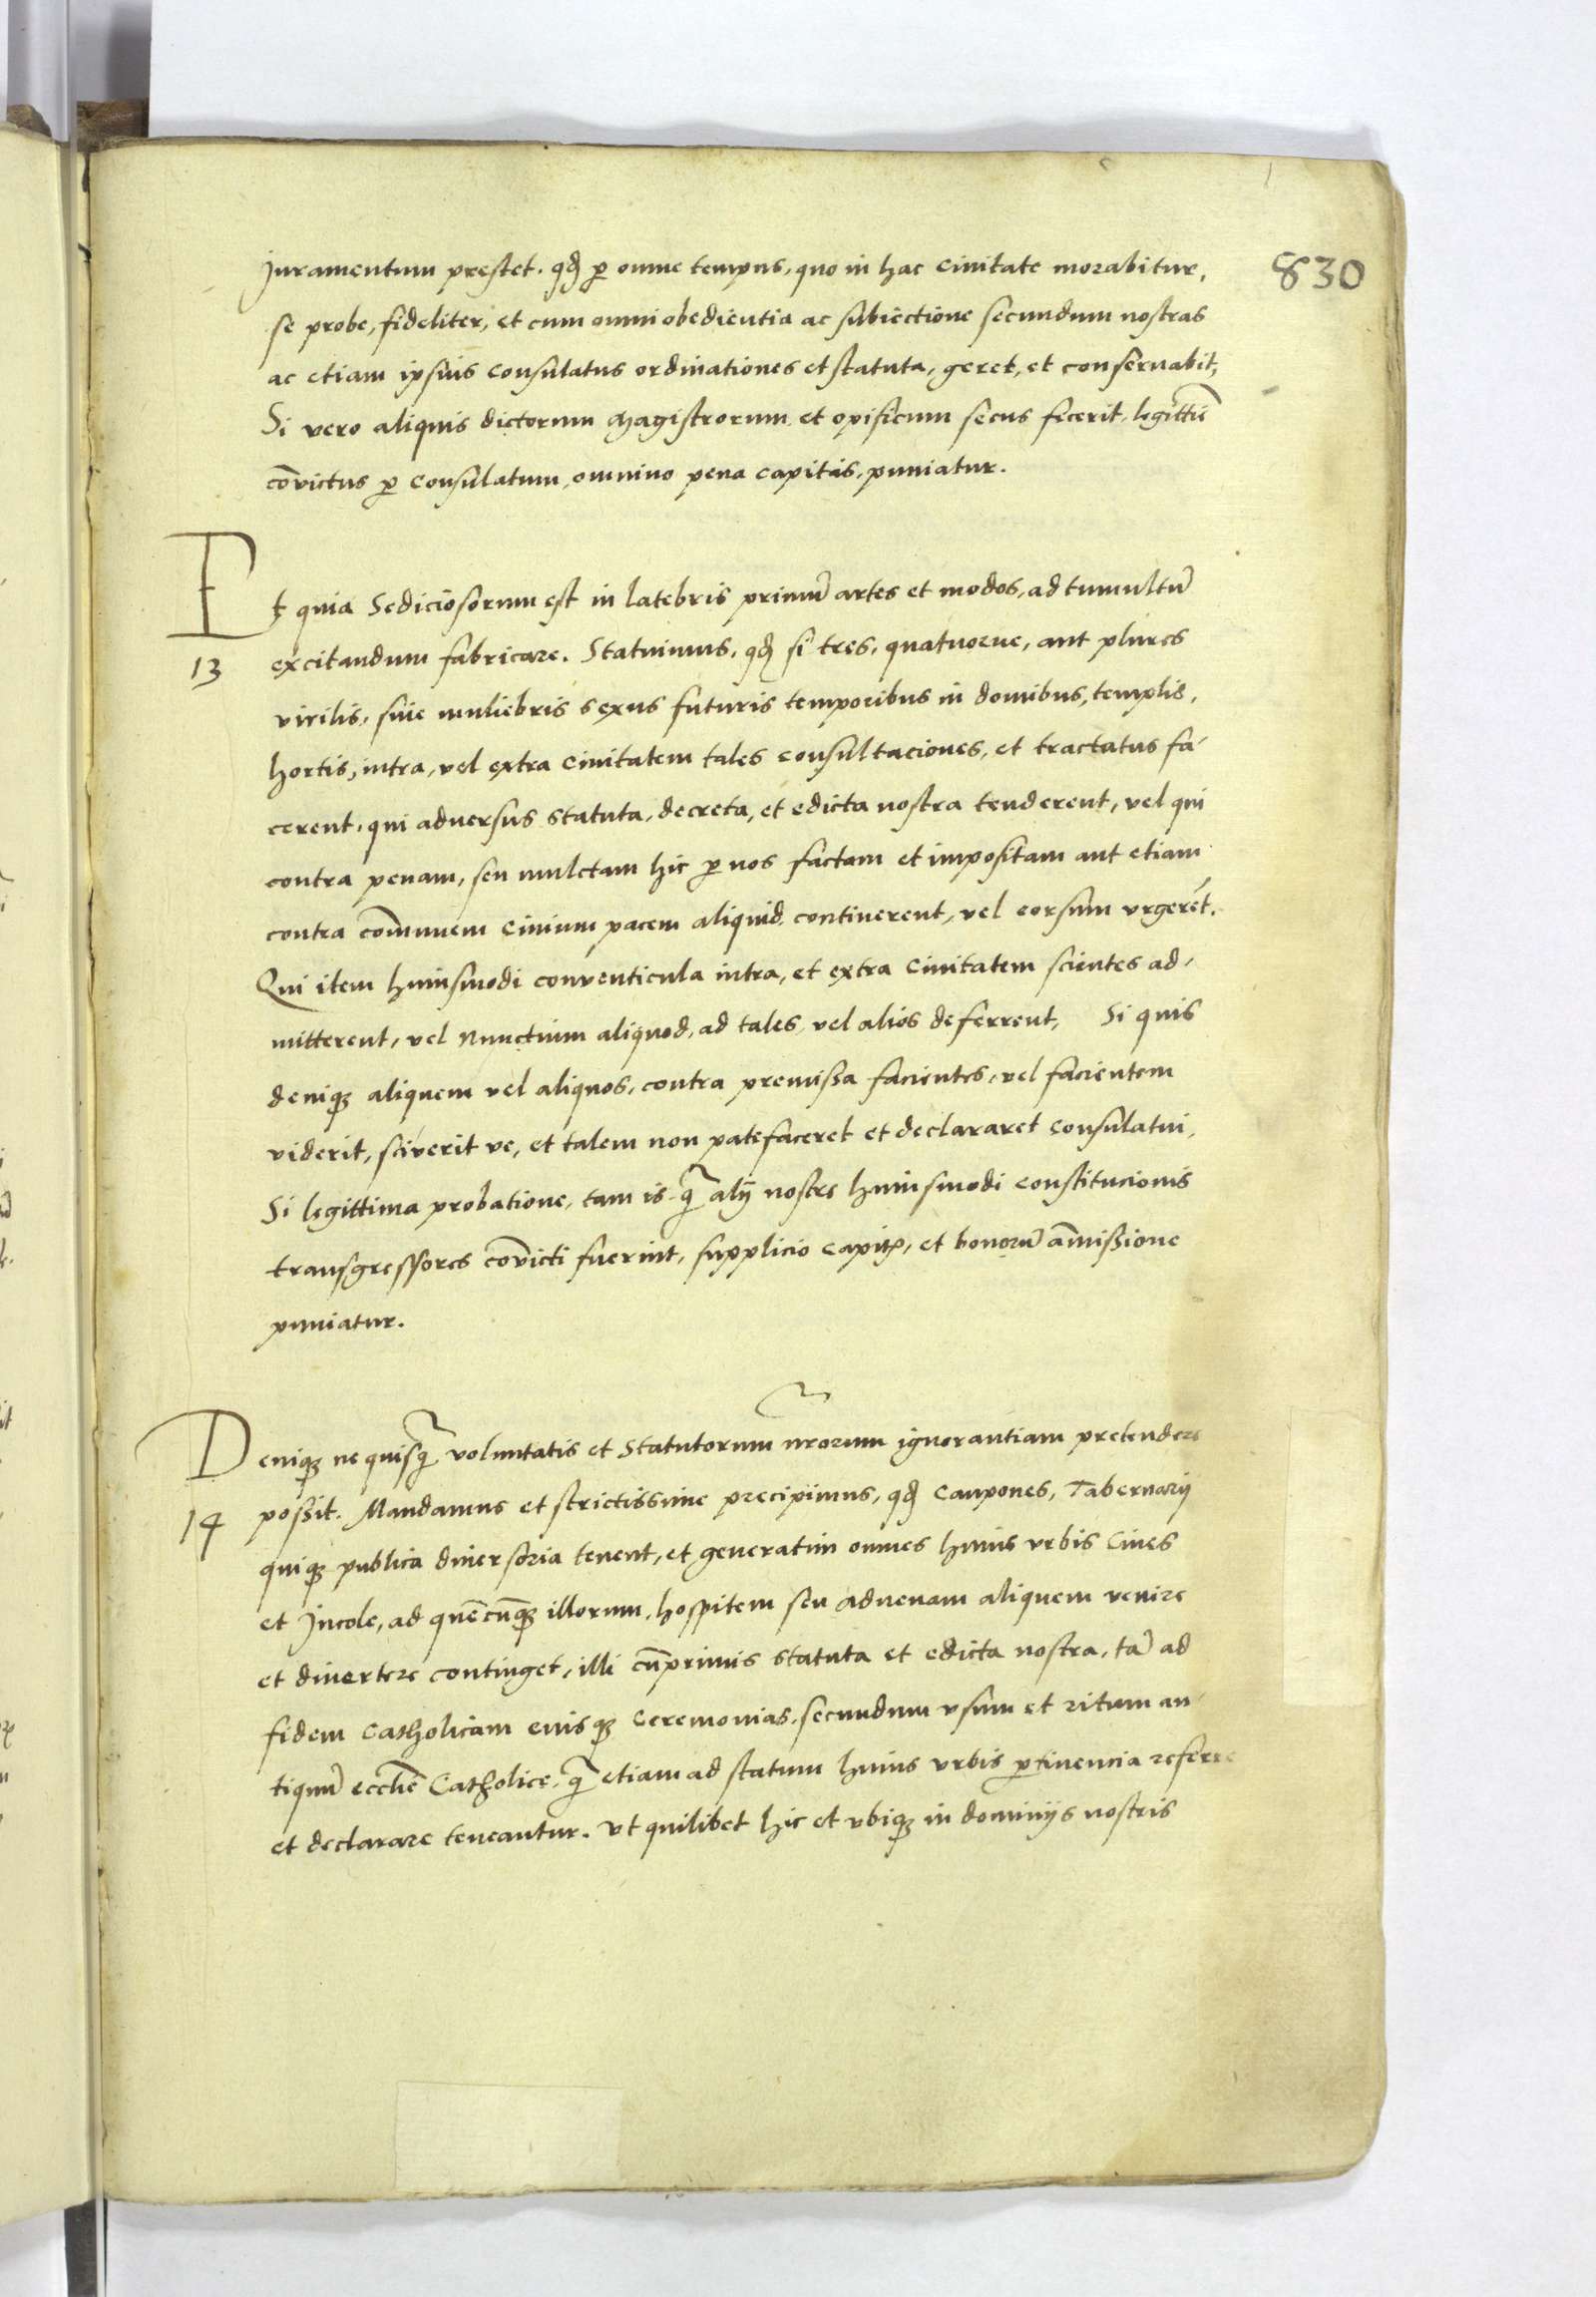 830
Juramentum prestet. qđ ꝑ omne tempus, quo in hac Ciuitate morabitur,
se probe, fideliter, et cum omni obedientia ac subiectione secundum nostras
ac etiam ipsius Consulatus ordinationes et statuta, geret, et conseruabit,
Si vero aliquis dictorum Magistrorum et opificum secus fecerit, legittie͂
co͂victus ꝑ Consulatum, omnino pena capitis, puniatur.
Et quia Sediciosorum est in latebris primu͂ artes et modos, ad tumultu͂
13 excitandum fabricare. Statuimus, qđ si tres, quatuorue, aut plures
virilis, siue muliebris sexus futuris temporibus in domibus, templis,
hortis, intra, vel extra Ciuitatem tales Consultaciones, et tractatus fa-
cerent, qui aduersus statuta, decreta, et edicta nostra tenderent, vel qui
contra penam, seu mulctam hic ꝑ nos factam et impositam aut etiam
contra co͂munem Ciuium pacem aliquid continerent, vel eorsum vrgere͂t.
Qui item huiusmodi conventicula intra, et extra Ciuitatem scientes ad-
mitterent, vel Nunctium aliquod, ad tales vel alios deferrent, Si quis
deniqꝫ aliquem vel aliquos, contra premissa facientes, vel facientem
viderit, sciverit ve, et talem non patefaceret et declararet Consulatui,
Si legittima probatione, tam is q͂ alij nostre huiusmodi Constitucionis
transgressores co͂victi fuerint, supplicio capitꝭ, et bonoru͂ a͂missione
puniatur.
Deniqꝫ ne quisq͂ voluntatis et Statutorum nr͂orum ignorantiam pretendere
14 possit. Mandamus et strictissime precipimus, qđ Caupones, Tabernarij
quiqꝫ publica diuersoria tenent, et generatim omnes huius vrbis Ciues
et Jncole, ad que͂cu͂qꝫ illorum, hospitem seu aduenam aliquem venire
et diuertere continget, illi cu͂primis statuta et edicta nostra, ta͂ ad
fidem Catholicam eiusqꝫ Ceremonias, secundum vsum et ritum an-
tiquu͂ eccl͂ie Catholice, q͂ etiam ad statum huius vrbis ꝑtinencia referre
et declarare teneantur. Vt quilibet hic et vbiqꝫ in dominijs nostris